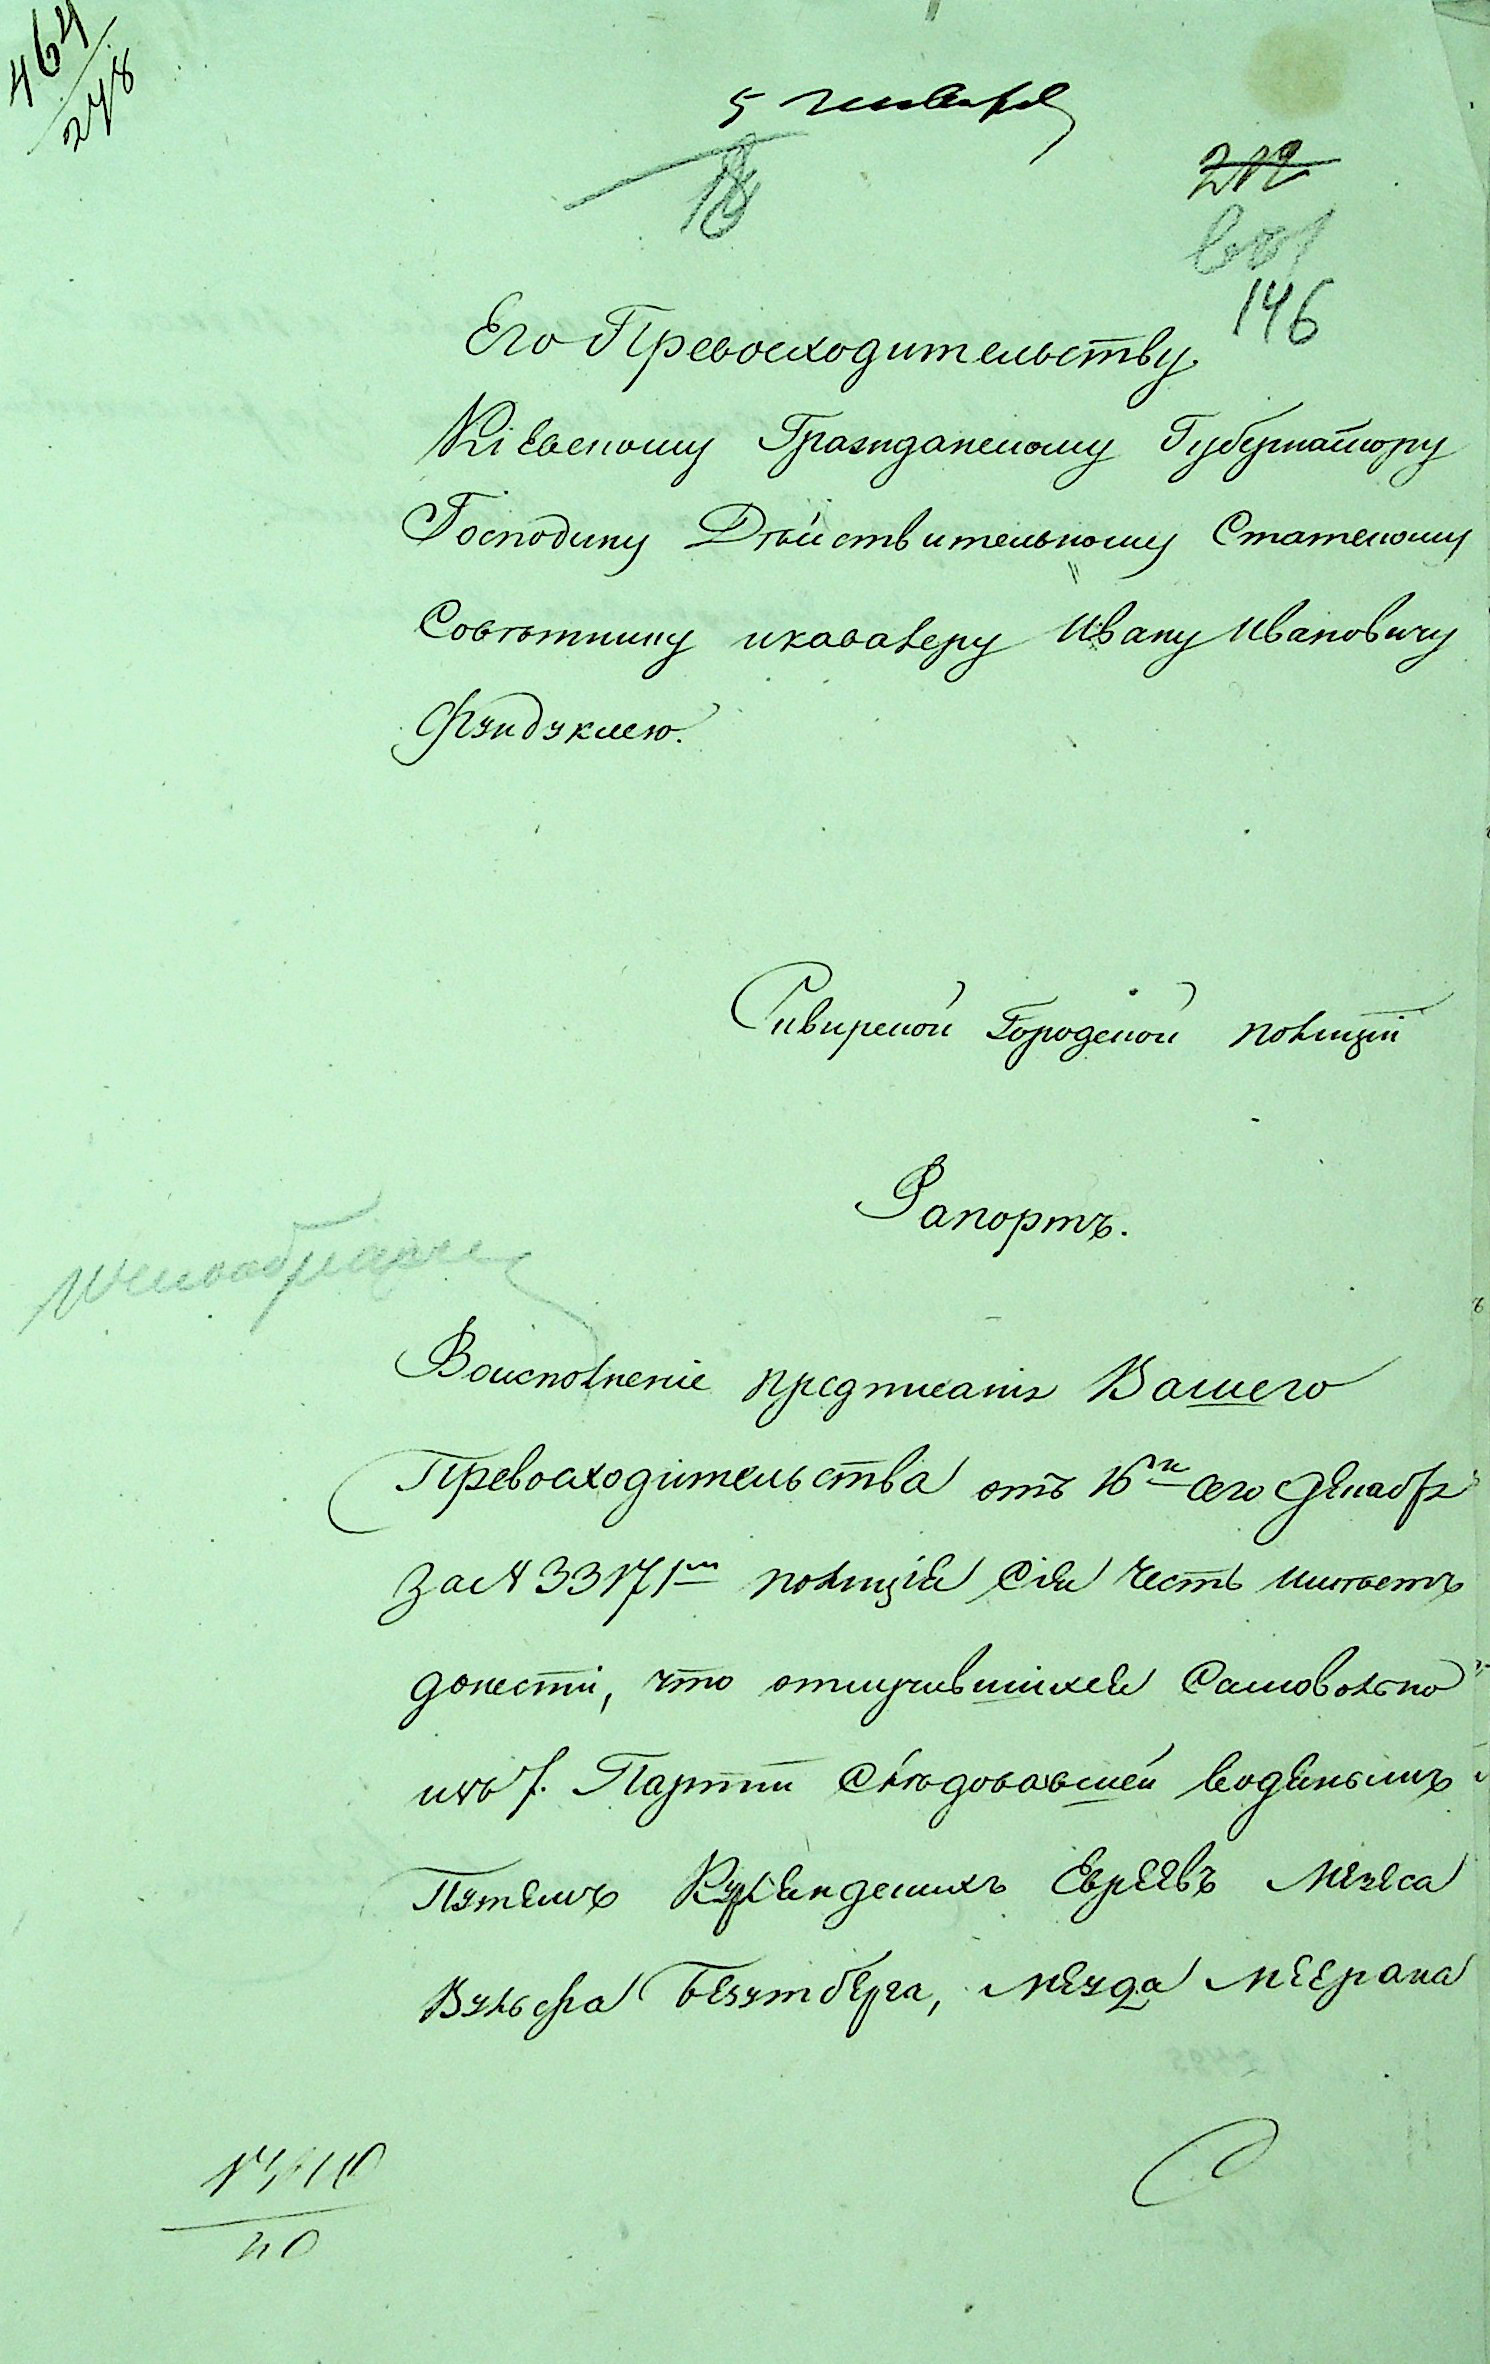 464
278
5 января
212
146
Его Превосходительству
Кіевскому Гражданскому Губернатору
Господину Дѣйствительному Статскому
Совѣтнику и кавалеру Ивану Ивановичу
Фундуклею.
Сквирской Городской полиціи
Рапортъ.
Во исполненіе предписанія Вашего
Превосходительства отъ 16го сего Декабря
за № 33171м полиція сія честь имѣетъ
донести, что отлучившихся самовольно
изъ Партіи слѣдовавшей водянымъ
Путемъ Курляндскихъ Евреевъ
Вульфа
40